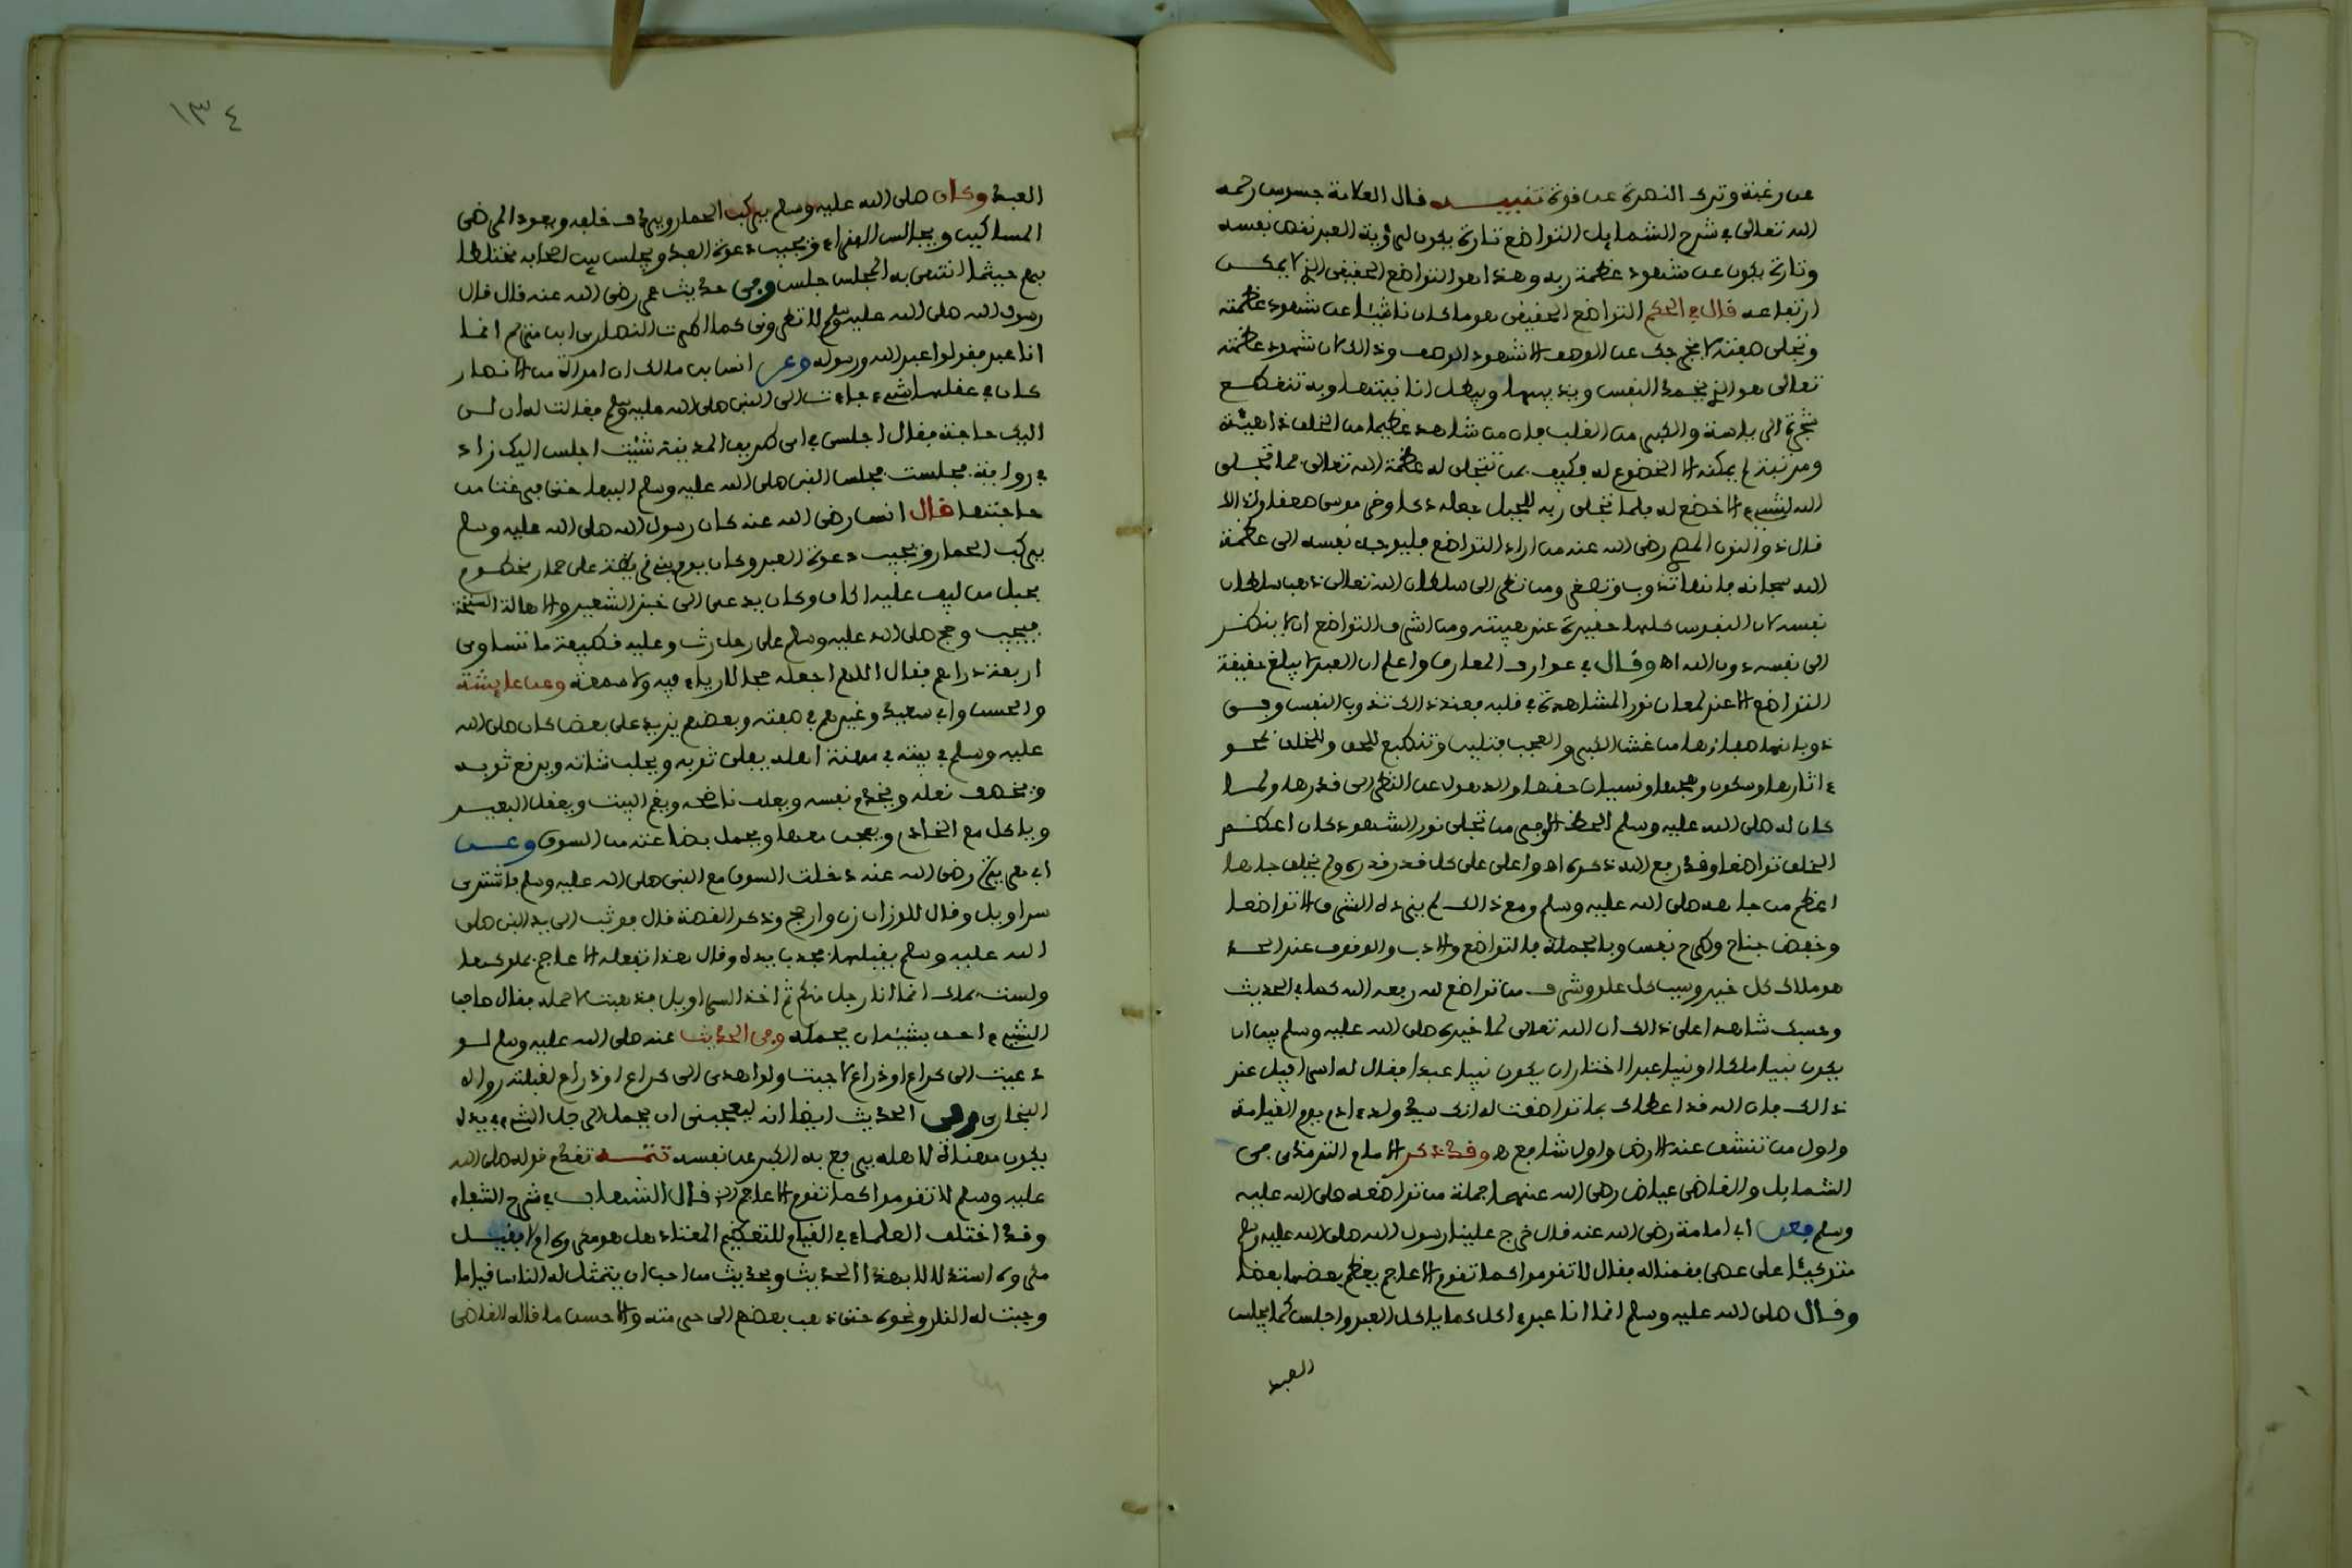 عن رغبة وترك النصرة عن قوة تنبيه قال العلامة جسوس رحمه
الله تعالى في شرح الشمايل التواضع تارة يكون لرؤية العبد نقص نفسه
وتارة يكون عن شهود عظمة ربه وهذا هو التواضع الحقيقي الذي لا يمكن
ارتفاعه قال في الحكم التواضع الحقيقي هو ما كان ناشئا عن شهود عظمته
وتجلي صفته لا يخرجك عن الوصف الا شهود الوصف وذالك لان شهود عظمته
تعالى هو الذي يخمد النفس ويذيبها ويبطل انانيتها وبه تنقطع
شجرة الرياسة والكبر من القلب فان من شاهد عظيما من الخلق ذا هيئة
ومرتبة لم يمكنه الا الخضوع له فكيف بمن تتجلى له عظمة الله تعالى فما تجلى
الله لشيء الا خضع له فلما تجلى ربه للجبل جعله دكا وخر موسى صعقا ولذالك
قال ذو النون المصري رضي الله عنه من اراد التواضع فليوجه نفسه الى عظمة
الله سبحانه فانها تذوب وتصغر ومن نظر الى سلطان الله تعالى ذهب سلطان
نفسه لان النفوس كلها حقيرة عند هيبته ومن اشرف التواضع ان لا ينظر
الى نفسه دون الله اه وقال في عوارف المعارف واعلم ان العبد لا يبلغ حقيقة
التواضع الا عند لمعان نور المشاهدة في قلبه فعند ذالك تذوب النفس وفي
ذوبانها صفاؤها من غش الكبر والعجب فتلين وتنطبع للحق والخلق بمحو
ءاثارها وسكون وهجها ونسيان حقها والذهول عن النظر الى قدرها ولما
كان له صلى الله عليه وسلم الحظ الاوفر من تجلي نور الشهود كان اعظم
الخلق تواضعا وقد رفع الله ذكره اه واعلى على كل قدر قدره ولم يخلق جاها
اعظم من جاهه صلى الله عليه وسلم ومع ذالك لم يزده الشرف الا تواضعا
وخفض جناح وطرح نفس وبالجملة فالتواضع والادب والوقوف عند الحد
هو ملاك كل خير وسبب كل علو وشرف من تواضع لله رفعه الله كما في الحديث
وحسبك شاهدا على ذالك ان الله تعالى لما خيره صلى الله عليه وسلم بين ان
يكون نبيا ملكا او نبيا عبدا اختار ان يكون نبيا عبدا فقال له اسرافيل عند
ذالك فان الله قد اعطاك بما تواضعت له انك سيد ولد ءادم يوم القيامة
واول من تنشق عنه الارض واول شافع اه وقد ذكر الامام الترمذي في
الشمايل والقاضي عياض رضي الله عنهما جملة من تواضعه صلى الله عليه
وسلم فعن ابي امامة رضي الله عنه قال خرج علينا رسول الله صلى الله عليه وسلم
متوكئا على عصى فقمنا له فقال لا تقوموا كما تقوم الاعاجم يعظم بعضها بعضا
وقال صلى الله عليه وسلم انما انا عبد ءاكل كما ياكل العبد واجلس كما يجلس
العبد
١٣٤
العبد وكان صلى الله عليه وسلم يركب الحمار ويردف خلفه ويعود المرضى
المساكين ويجالس الفقراء ويجيب دعوة العبد ويجلس بين اصحابه مختلطا
بهم حيثما انتهى به المجلس جلس وفي حديث عمر رضي الله عنه قال قال
رسول الله صلى الله عليه وسلم لا تطروني كما اطرت النصارى ابن مريم انما
انا عبد فقولوا عبد الله ورسوله وعن انس بن مالك ان امراة من الانصار
كان في عقلها شيء جاءت الى النبي صلى الله عليه وسلم فقالت له ان لي
اليك حاجة فقال اجلسي في اي طريق المدينة شئت اجلس اليك زاد
في رواية فجلست فجلس النبي صلى الله عليه وسلم اليها حتى فرغت من
حاجتها قال انس رضي الله عنه كان رسول الله صلى الله عليه وسلم
يركب الحمار ويجيب دعوة العبد وكان يوم بني قريظة على حمار مخطوم
بحبل من ليف عليه اكاف وكان يدعى الى خبز الشعير والاهالة السنخة
فيجيب وحج صلى الله عليه وسلم على رحل رث وعليه قطيفة ما تساوي
اربعة دراهم فقال اللهم اجعله حجا لا رياء فيه ولا سمعة وعن عايشة
والحسن وابي سعيد وغيرهم في صفته وبعضهم يزيد على بعض كان صلى الله
عليه وسلم في بيته في مهنة اهله يفلي ثوبه ويحلب شاته ويرقع ثوبه
ويخصف نعله ويخدم نفسه ويعلف ناضحه ويقم البيت ويعقل البعير
وياكل مع الخادم ويعجن معها ويحمل بضاعته من السوق وعن
ابي هريرة رضي الله عنه دخلت السوق مع النبي صلى الله عليه وسلم فاشترى
سراويل وقال للوزان زن وارجح وذكر القصة قال فوثب الى يد النبي صلى
الله عليه وسلم يقبلها فجذب يده وقال هذا تفعله الاعاجم بملوكها
ولست بملك انما انا رجل منكم ثم اخذ السراويل فذهبت لاحمله فقال صاحب
الشيء احق بشيئه ان يحمله وفي الحديث عنه صلى الله عليه وسلم لو
دعيت الى كراع او ذراع لاجبت ولو اهدي الى كراع او ذراع لقبلته رواه
البخاري وفي الحديث ايضا انه ليعجبني ان يحمل الرجل الشيء بيده
يكون مهنأة لاهله يرفع به الكبر عن نفسه تتمة تقدم قوله صلى الله
عليه وسلم لا تقوموا كما تقوم الاعاجم الخ قال الشهاب في شرح الشفاء
وقد اختلف العلماء في القيام للتعظيم المعتاد هل هو مكروه ام لا فقيل
مكروه استدلالا بهذا الحديث وبحديث من احب ان يتمثل له الناس قياما
وجبت له النار ونحوه حتى ذهب بعضهم الى حرمته والاحسن ما قاله القاضي